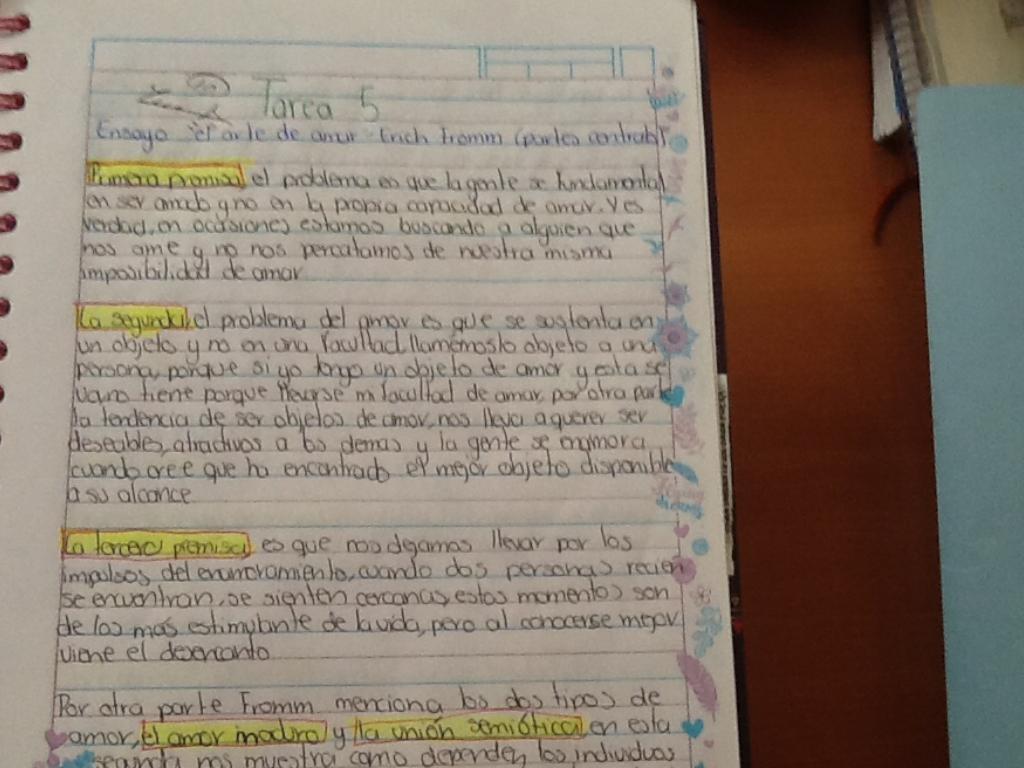 Tarea 5
Ensayo "el arte de amar" Erich Fromm (partes central)
Primera premisa, el problema es que la gente se fundamenta
en ser amado y no en la propia capacidad de amar. Y es
verdad, en ocasiones estamos buscando a alguien que
nos ame y no nos percatamos de nuestra misma
imposibilidad de amar
La segunda, el problema del amor es que se sustenta en
un objeto y no en una facultad, llamémoslo objeto a una
persona, porque si yo tengo un objeto de amor y esta se
va, no tiene porque llevarse mi facultad de amar, por otra parte
la tendencia de ser objetos de amor, nos lleva a querer ser
deseables, atractivos a los demas y la gente se enamora
cuando cree que ha encontrado el mejor objeto disponible
a su alcance
La tercera premisa, es que nos dejamos llevar por los
impulsos del enamoramiento, cuando dos personas recien
se encuentran, se sienten cercanas, estos momentos son
de los mas estimulante de la vida, pero al conocerse mejor
viene el desencanto
Por otra parte Fromm menciona los dos tipos de
amor, el amor maduro y la unión semiótica, en esta
segunda nos muestra como dependen los individuos